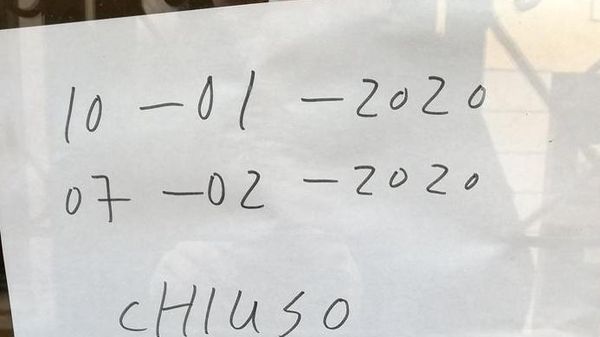 10 - 01 - 2020
07 - 02 - 2020
CHIUSO